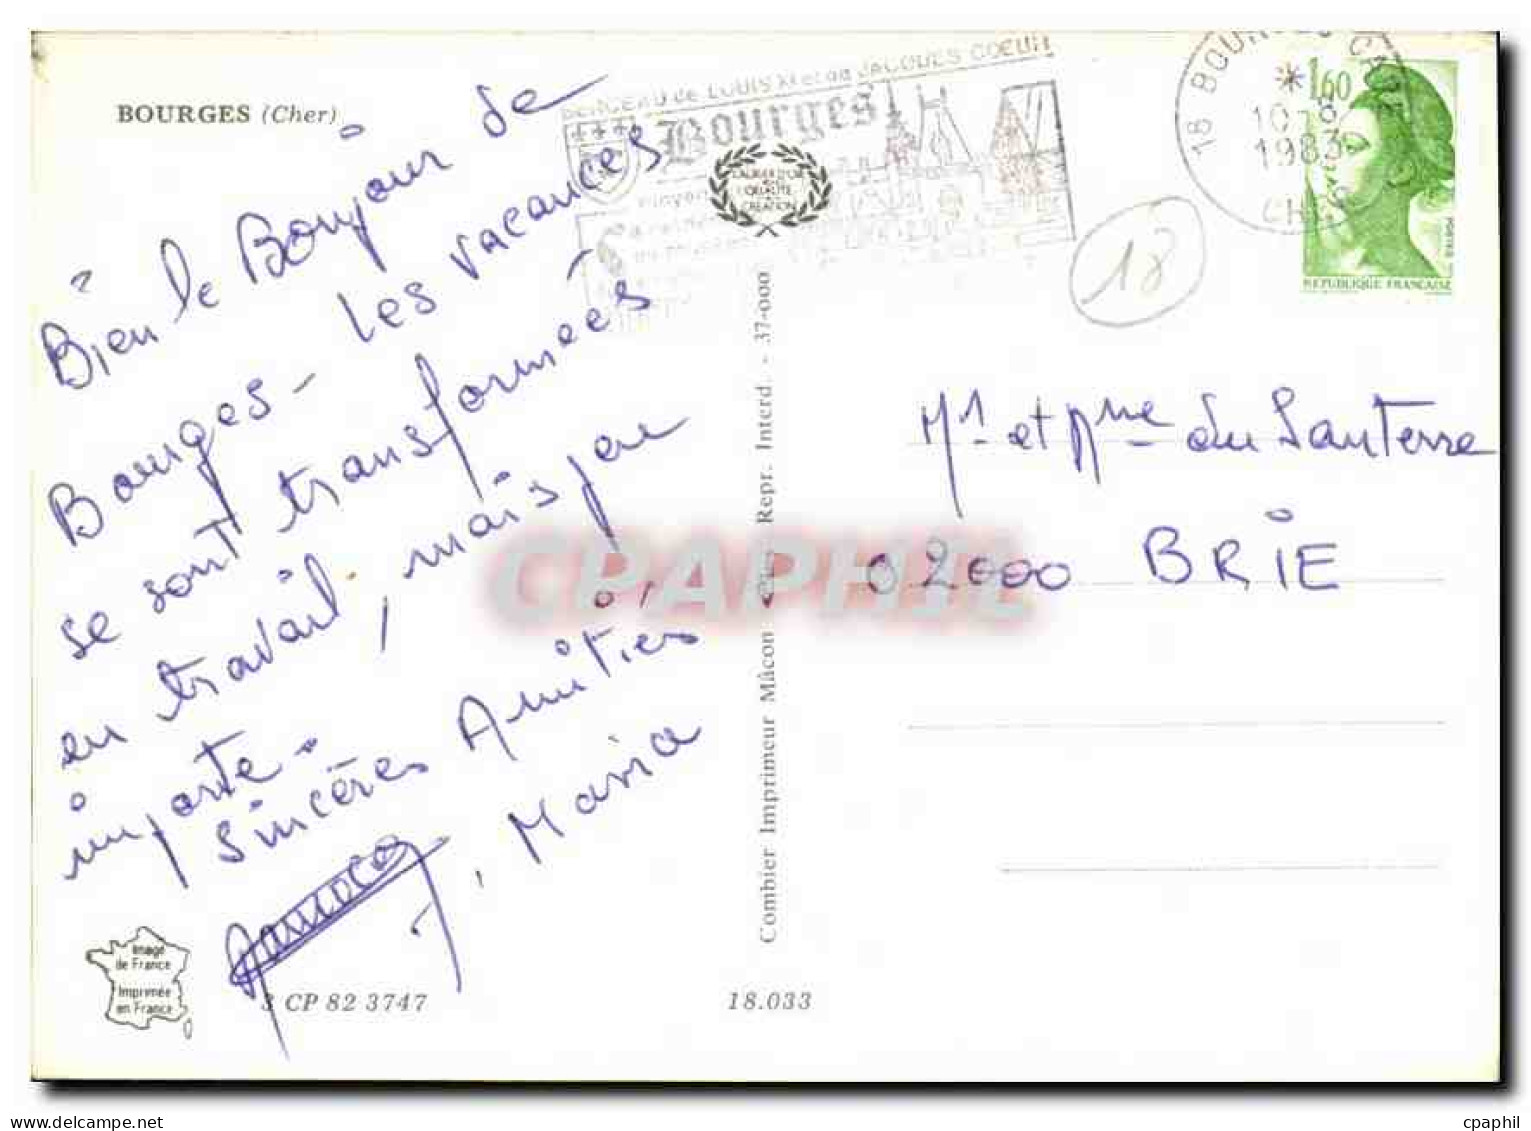 BOURGES (Cher)
BERCEAU de LOUIS XI et de JACQUES COEUR
Bourges
LAURIER D'OR
QUALITÉ
CREATION
18 BOURGES
*
10-8
1983
CHER
1,60
POSTES
REPUBLIQUE FRANÇAISE
18
Bien le Bonjour de
Bourges - les vacances
se sont transformées
en travail, mais peu
importe.
Sincères Amitiés
, Maria
Mr et Mme du Sauterre
02000 BRIE
CPAPHIL
Combier Imprimeur Mâcon Repr. Interd. - 37-000
Image
de France
Imprimée
en France
3 CP 82 3747
18.033
cpaphil